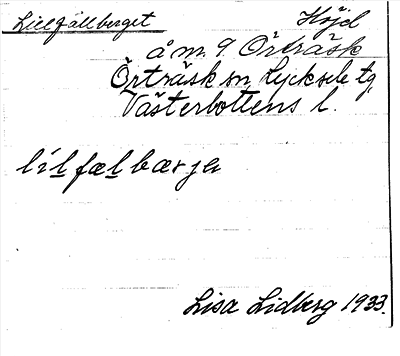 Lillfjällberget Höjd
å m. 9 Örträsk
Örträsk sn, Lycksele tg,
Västerbottens l.
lilfælbærjə
Lisa Lidberg 1933.